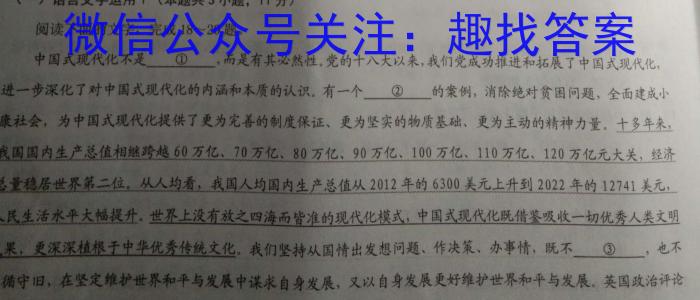 (一)语言文字运用Ⅰ(本题共3小题,11分)
阅读下面的文字,完成18~20题。
微信公众号关注:趣找答案
中国式现代化不是 ① ,而是有其必然性。党的十八大以来,我们党成功推进和拓展了中国式现代化,
进一步深化了对中国式现代化的内涵和本质的认识。有一个 ② 的案例,消除绝对贫困问题,全面建成小
康社会,为中国式现代化提供了更为完善的制度保证、更为坚实的物质基础、更为主动的精神力量。十多年来,
我国国内生产总值相继跨越60万亿、70万亿、80万亿、90万亿、100万亿、110万亿、120万亿元大关,经济
总量稳居世界第二位。从人均看,我国人均国内生产总值从2012年的6300美元上升到2022年的12741美元,
人民生活水平大幅提升。世界上没有放之四海而皆准的现代化模式,中国式现代化既借鉴吸收一切优秀人类文明
果,更深深植根于中华优秀传统文化。我们坚持从国情出发想问题、作决策、办事情,既不 ③ ,也不
循守旧,在坚定维护世界和平与发展中谋求自身发展,又以自身发展更好维护世界和平与发展。英国政治评论